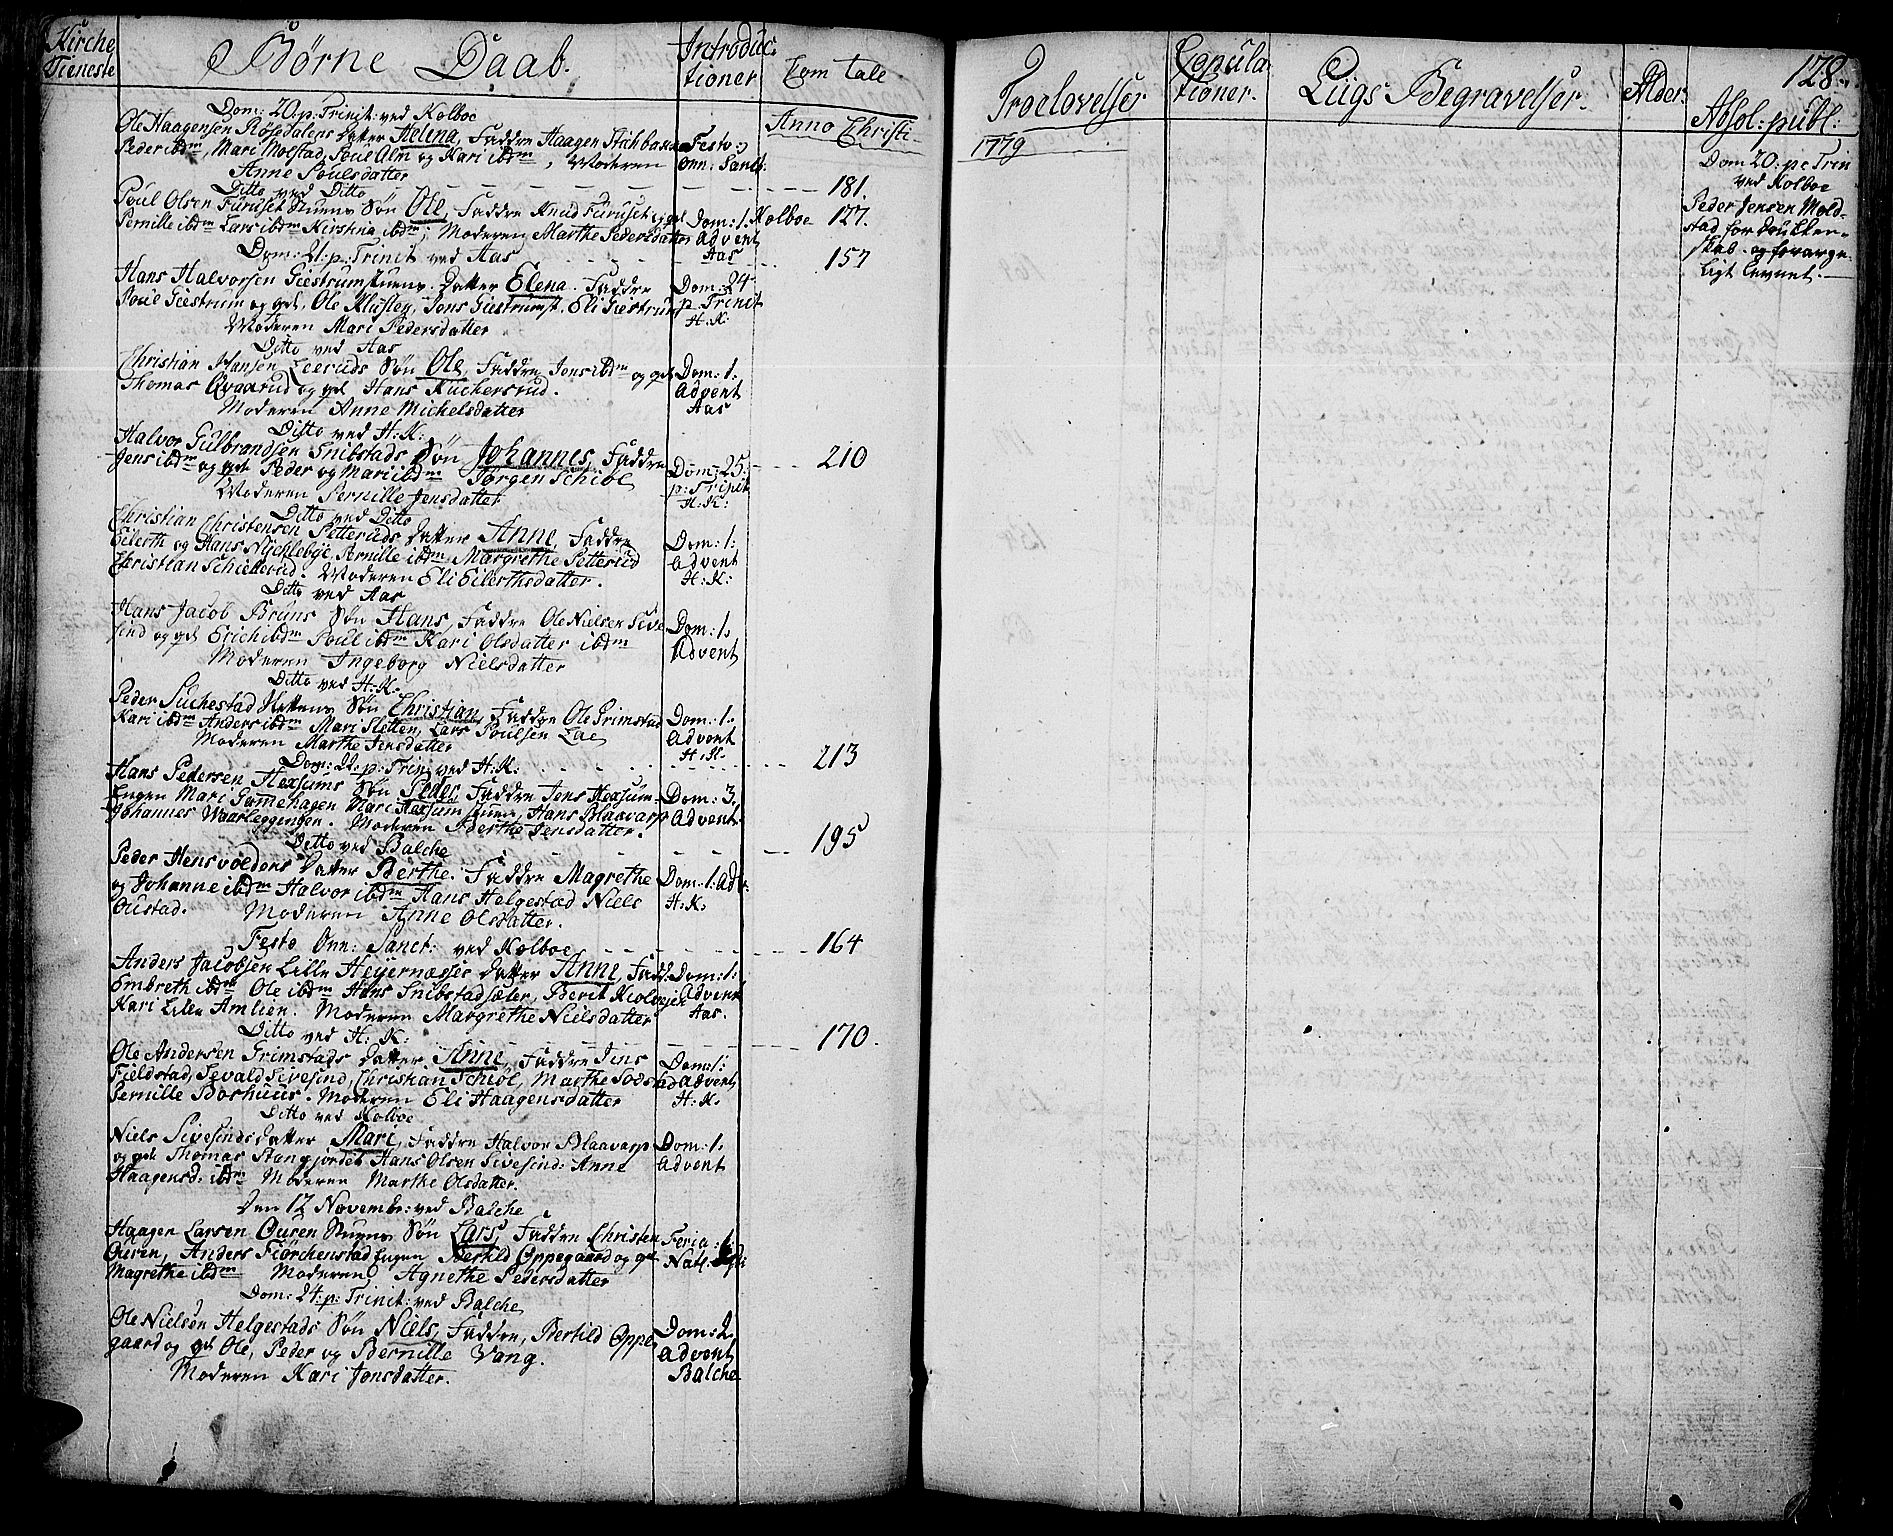 Kirche
Tieneste
Børne Daab.
Introduc:
tioner
Com tale
Anno Christi
Dom: 20. p: Trinit: ved Kolboe
Ole Haagensen Røisedalens datter Helena, Faddre Haagen
Peder ibdm, Mari Molstad, Poul Alm og Kari ibdm, Moderen
Anne Poulsdatter
Festo
Omn: Sanct:
181.
Ditto ved Ditto
Poul Olsen Furuset Stuens Søn Ole, Faddre Knud Furuset og qd
Pernille ibdm Lars ibdm Kirstina ibdm; Moderen Marthe Pedersdatter
Dom: 1.
Advent
Aas
Kolboe 127.
Dom: 21. p: Trinit ved Aas
157
Hans Halvorsen Giestrumstuens datter Elena. Faddre
Poul Giestrum og qd, Ole Klusley, Jens Giestrumst. Eli Giestrum
Moderen Mari Pedersdatter
Dom: 24
p Trinit
H: K:
Ditto ved Aas
Christian Hansen Leeruds Søn Ole, Faddre Jens ibdm og qd
Thomas Qvaarud og qd Hans Kuchersrud.
Moderen Anne Michelsdatter
Dom: 1:
Advent
Aas
Ditto ved H: K:
Halvor Gulbrandsen Snibstads Søn Johannes, Faddre
Jens ibdm og qd Peder og Mari ibdm Jørgen Schiøl
Moderen Pernille Jensdatter
Dom: 25.
p: Trinit
H: K:
210
Ditto ved Ditto
Christian Christensen Petteruds datter Anne, Faddre
Eilerth og Hans Nychlebye, Pernille ibdm Margrethe Petterud
Christian Schiellerud. Moderen Eli Eilerthsdatter.
Dom: 1:
Advent
H: K:
Ditto ved Aas
Hans Jacob Bruns Søn Hans, Faddre Ole Nielsen Sive
sind og qd Erich ibdm Poul ibdm Kari Olsdatter ibdm
Moderen Ingeborg Nielsdatter
Dom: 1.
Advent
Ditto ved H: K.
Peder Suchestad Søn Christian, Faddre Ole Grimstad
Kari ibdm Anders ibdm Mari Sletten, Lars Poulsen Lae
Moderen Marthe Jensdatter
Dom: 1.
Advent
H: K.
Dom: 22. p: Trin: ved H: K:
213
Hans Pedersen Hexsums Søn Peder, Faddre Jens Hexsum-
Engen Mari Gamehagen Mari Hexsum stuen, Hans Blaavarp
Johannes Waarleggengen. Moderen Berthe Jensdatter.
Dom: 3.
Advent
Ditto ved Balche
195
Peder Hensvoldens datter Berthe. Faddre Magrethe
og Johanne ibdm Halvor ibdm Hans Helgestad Niels
Oustad. Moderen Anne Olsdatter.
Dom: 1. Adv:
H: K.
Festo Omn: Sanct: ved Kolboe
164
Anders Jacobsen Lille Heyernæssis datter Anne, Fadd
Embreth ibdm Ole ibdm Hans Snibstadsæler, Berit
Kari Lille Amlien. Moderen Margrethe Nielsdatter
Dom: 1:
Advent
Aas.
Ditto ved H: K:
170.
Ole Andersen Grimstads datter Anne, Faddre Jens
Fieldstad, Sevald Sivesind, Christian Schiøl, Marthe Sodsta
Pernille Borhuus. Moderen Eli Haagensdatter
Dom: 1:
Advent
H: K.
Ditto ved Kolboe
Niels Sivesinds datter Mari, Faddre Halvor Blaavarp
og qd Thomas Stangjordet Hans Olsen Sivesind: Anne
Haagensd. ibdm Moderen Marthe Olsdatter.
Dom: 1.
Advent
Den 12 Novembr: ved Balche
Haagen Larsen Ouren Stuens Søn Lars, Faddre Christen
Ouren, Anders Fiørchenstad Engen Bertild Oppegaard og qd
Magrethe ibdm Moderen Agnethe Pedersdatter
Feria: 1:
Nat.
Dom: 24. p: Trinit: ved Balche
Ole Nielsen Helgestads Søn Niels, Faddre, Bertild Oppe
gaard og qd Ole, Peder og Bernille Vang.
Moderen Kari Jonsdatter.
Dom: 2.
Advent
Balche
Troelovelser
1779
Copula
tioner.
Liigs Begravelser.
Alder.
128.
Absol: publ:
Dom 20: p: Trin
ved Kolboe
Peder Jensen Mold-
stad for drukken-
skab og forarge
ligt levnet.